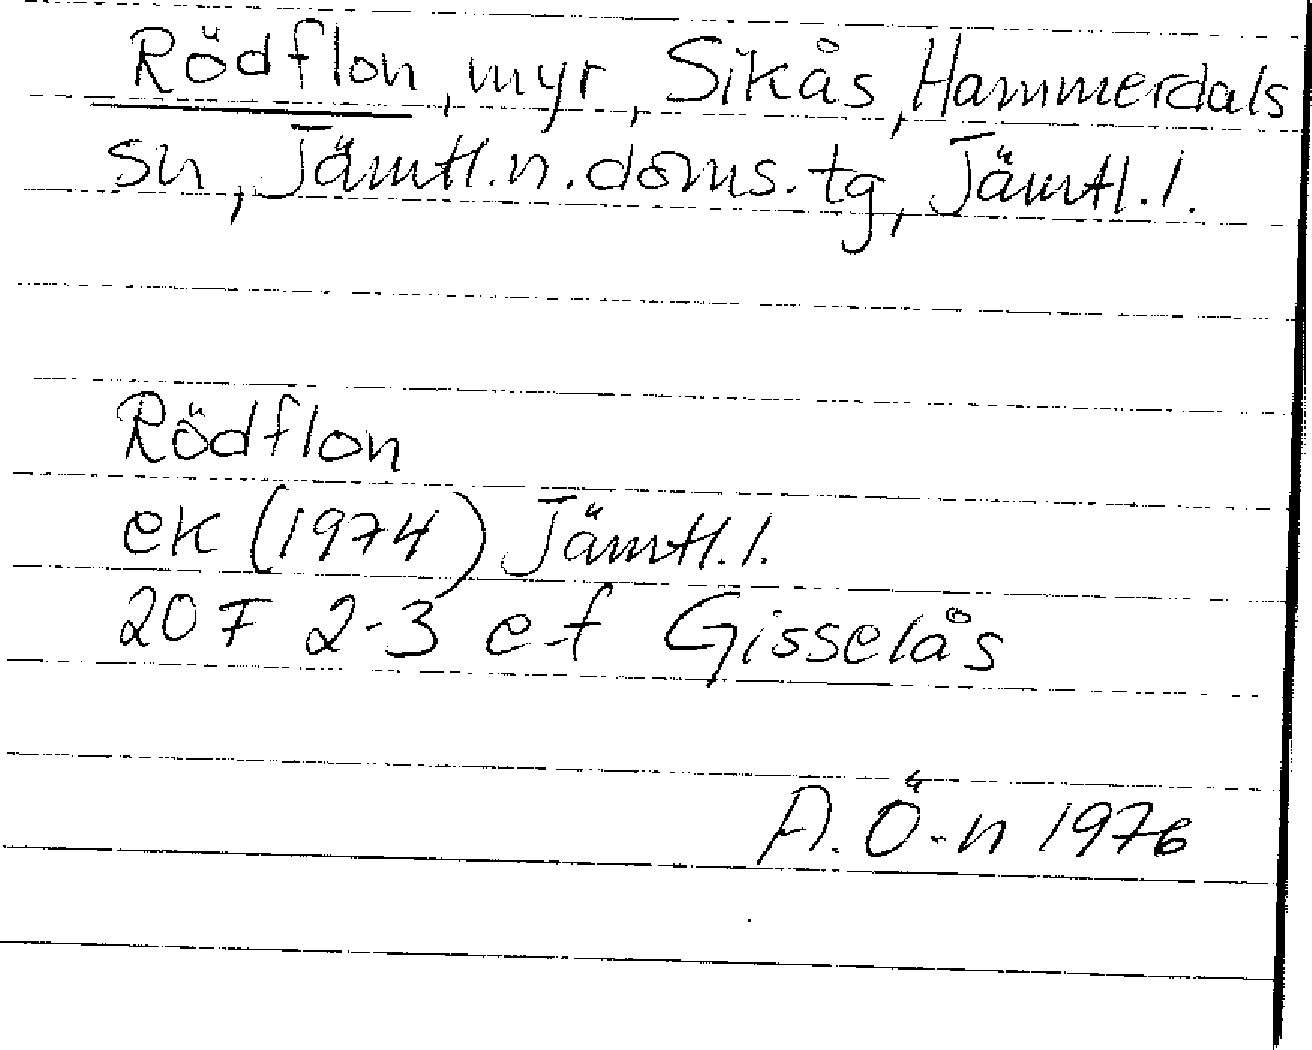 Rödflon, myr, Sikås, Hammerdals
sn, Jämtl.n.doms.tg, Jämtl.l.
Rödflon
ek (1974) Jämtl.l.
20 F 2-3 e-f Gisselås
A. Ö-n 1976